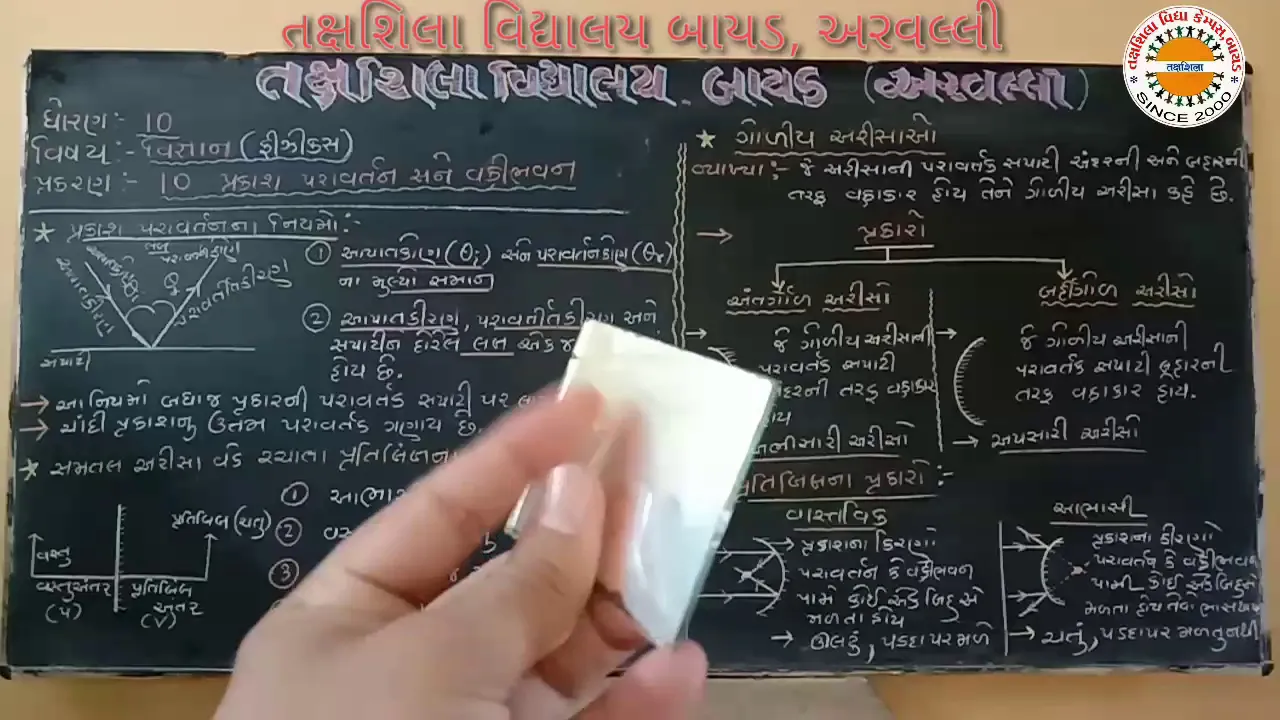 તક્ષશિલા વિદ્યાલય બાયડ, અરવલ્લી
તક્ષશિલા વિદ્યા કેમ્પસ, બાયડ
તક્ષશિલા
SINCE 2000
તક્ષશિલા વિદ્યાલય બાયડ (અરવલ્લી)
ધોરણ:- 10
વિષય:- વિજ્ઞાન (ફીઝીક્સ)
પ્રકરણ:- 10 પ્રકાશ પરાવર્તન અને વક્રીભવન
★ પ્રકાશ પરાવર્તનના નિયમો:-
લંબ
આપાતકોણ
પરાવર્તનકોણ
આપાતકીરણ
પરાવર્તીતકીરણ
સપાટી
① આપાતકોણ (θi) અને પરાવર્તનકોણ (θr)
ના મુલ્યો સમાન
② આપાતકીરણ, પરાવર્તીતકીરણ અને
સપાટીને દોરેલ લંબ એક જ
હોય છે.
→ આ નિયમો બધા જ પ્રકારની પરાવર્તક સપાટી પર
→ ચાંદી પ્રકાશનુ ઉત્તમ પરાવર્તક ગણાય છે.
★ સમતલ અરીસા વડે રચાતા પ્રતિબિંબના
①
②
③
વસ્તુ
પ્રતિબિંબ (ચતુ)
વસ્તુઅંતર
(u)
પ્રતિબિંબ
અંતર
(v)
★ ગોળીય અરીસાઓ
વ્યાખ્યા:- જે અરીસાની પરાવર્તક સપાટી અંદરની અને બહારની
તરફ વક્રાકાર હોય તેને ગોળીય અરીસા કહે છે.
→ પ્રકારો
અંતર્ગોળ અરીસો
→ જે ગોળીય અરીસાની
પરાવર્તક સપાટી
અંદરની તરફ વક્રાકાર
હોય
અભીસારી અરીસો
બર્હીગોળ અરીસો
→ જે ગોળીય અરીસાની
પરાવર્તક સપાટી બહારની
તરફ વક્રાકાર હોય.
→ અપસારી અરીસો
પ્રતિબિંબના પ્રકારો:-
વાસ્તવિક
→ પ્રકાશના કિરણો
પરાવર્તન કે વક્રીભવન
પામી કોઈ એક બિંદુએ
મળતા હોય
→ ઊલટું, પડદા પર મળે
આભાસી
પ્રકાશના કીરણો
પરાવર્તન કે વક્રીભવન
પામી કોઈ એક બિંદુએ
મળતા હોય તેવો ભાસ થાય
→ ચતું, પડદા પર મળતુ નથી